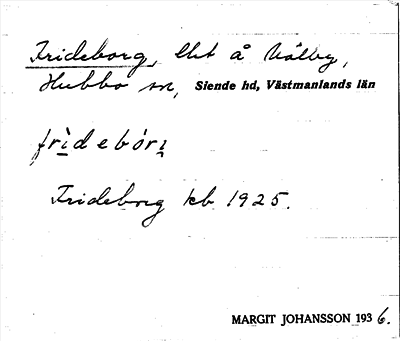 Frideborg, lht å Målby,
Hubbo sn, Siende hd, Västmanlands län
frìdebórj
Frideborg kb 1925.
MARGIT JOHANSSON 1936.